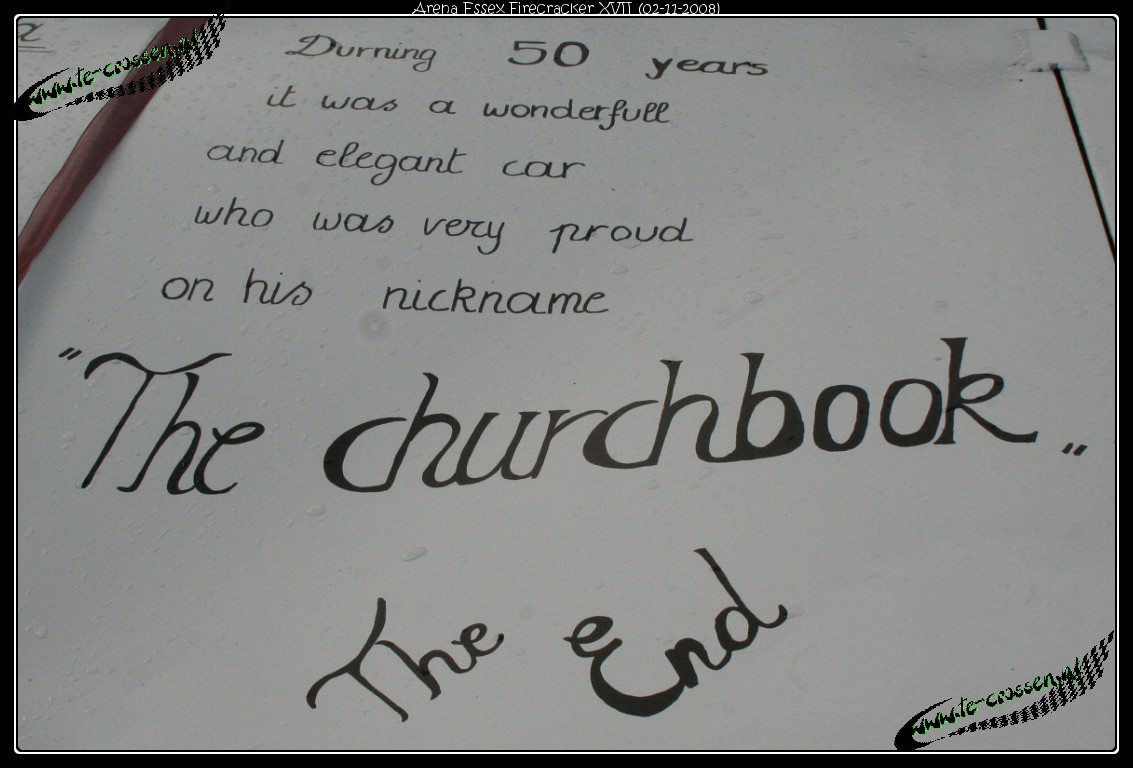 Arena Essex Firecracker XVII (02-11-2008)
www.te-crossen.nl
Durning 50 years
it was a wonderfull
and elegant car
who was very proud
on his nickname
"The churchbook"
The End
www.te-crossen.nl